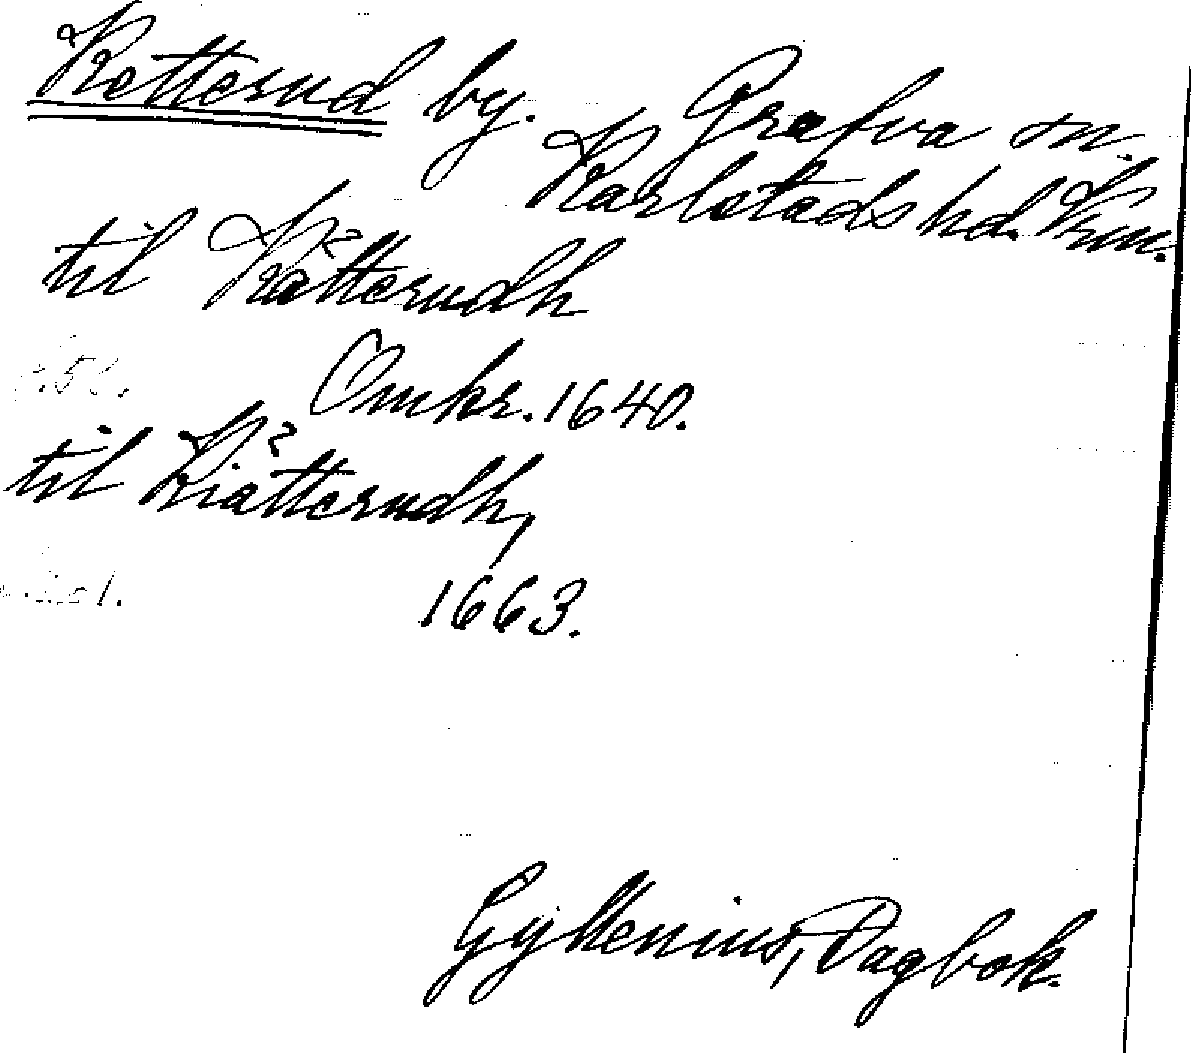 Ketterud by. Grafva sn.
Karlstads hd. Vrm.
til Kåtterudh
Omkr. 1640.
til Kiätterudh,
1663.
Gyllenius, Dagbok.